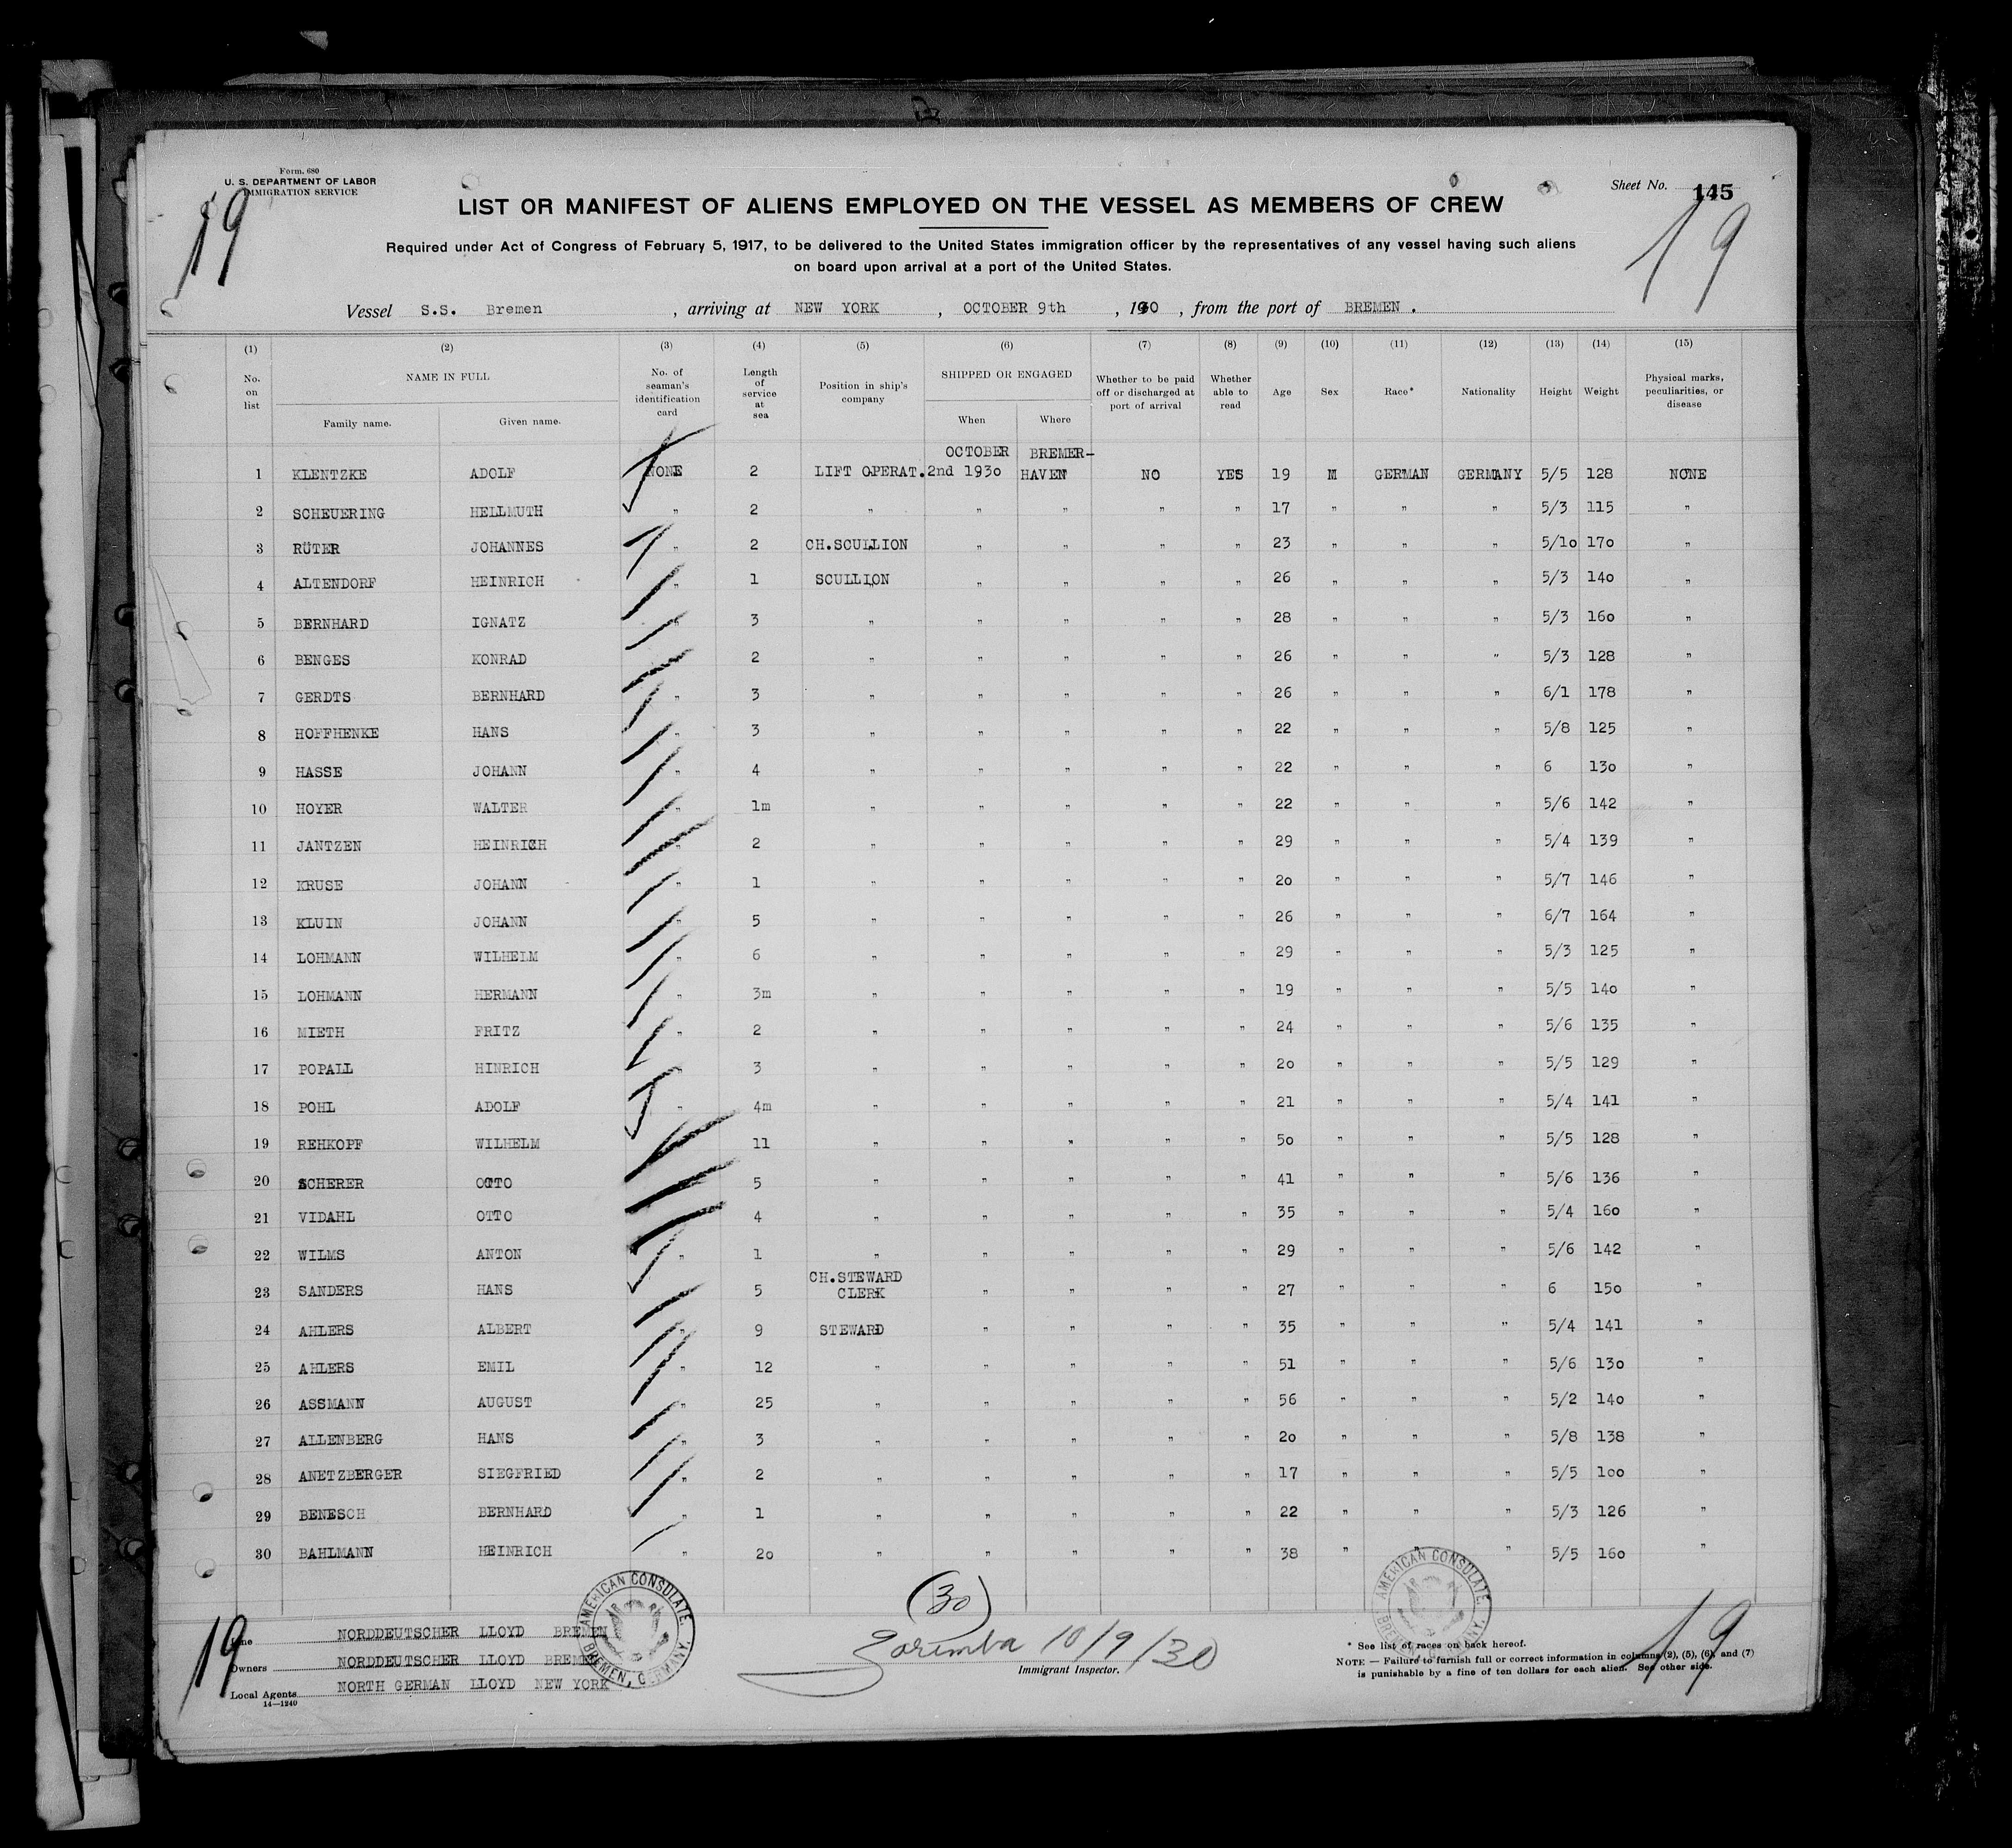 Form. 680
U. S. DEPARTMENT OF LABOR
IMMIGRATION SERVICE
19
Sheet No. 145
19
LIST OR MANIFEST OF ALIENS EMPLOYED ON THE VESSEL AS MEMBERS OF CREW
Required under Act of Congress of February 5, 1917, to be delivered to the United States immigration officer by the representatives of any vessel having such aliens
on board upon arrival at a port of the United States.
Vessel S.S. Bremen , arriving at NEW YORK , OCTOBER 9th , 1930 , from the port of BREMEN .
(1) (2) (3) (4) (5) (6) (7) (8) (9) (10) (11) (12) (13) (14) (15)
No. on list NAME IN FULL Family name. Given name. No. of seaman's identification card Length of service at sea Position in ship's company SHIPPED OR ENGAGED When Where Whether to be paid off or discharged at port of arrival Whether able to read Age Sex Race* Nationality Height Weight Physical marks, peculiarities, or disease
1 KLENTZKE ADOLF NONE 2 LIFT OPERAT. OCTOBER 2nd 1930 BREMER-HAVEN NO YES 19 M GERMAN GERMANY 5/5 128 NONE
2 SCHEUERING HELLMUTH " 2 " " " " " 17 " " " 5/3 115 "
3 RÜTER JOHANNES " 2 CH.SCULLION " " " " 23 " " " 5/10 170 "
4 ALTENDORF HEINRICH " 1 SCULLION " " " " 26 " " " 5/3 140 "
5 BERNHARD IGNATZ " 3 " " " " " 28 " " " 5/3 160 "
6 BENGES KONRAD 2 " " " " " 26 " " " 5/3 128 "
7 GERDTS BERNHARD " 3 " " " " " 26 " " " 6/1 178 "
8 HOFFHENKE HANS " 3 " " " " " 22 " " " 5/8 125 "
9 HASSE JOHANN " 4 " " " " " 22 " " " 6 130 "
10 HOYER WALTER " 1m " " " " " 22 " " " 5/6 142 "
11 JANTZEN HEINRICH " 2 " " " " " 29 " " " 5/4 139 "
12 KRUSE JOHANN " 1 " " " " " 20 " " " 5/7 146 "
13 KLUIN JOHANN " 5 " " " " " 26 " " " 6/7 164 "
14 LOHMANN WILHELM " 6 " " " " " 29 " " " 5/3 125 "
15 LOHMANN HERMANN " 3m " " " " " 19 " " " 5/5 140 "
16 MIETH FRITZ " 2 " " " " " 24 " " " 5/6 135 "
17 POPALL HINRICH 3 " " " " " 20 " " " 5/5 129 "
18 POHL ADOLF " 4m " " " " " 21 " " " 5/4 141 "
19 REHKOPF WILHELM 11 " " " " " 50 " " " 5/5 128 "
20 SCHERER OTTO 5 " " " " " 41 " " " 5/6 136 "
21 VIDAHL OTTO 4 " " " " " 35 " " " 5/4 160 "
22 WILMS ANTON " 1 " " " " " 29 " " " 5/6 142 "
23 SANDERS HANS 5 CH.STEWARD CLERK " " " " 27 " " " 6 150 "
24 AHLERS ALBERT " 9 STEWARD " " " " 35 " " " 5/4 141 "
25 AHLERS EMIL " 12 " " " " " 51 " " " 5/6 130 "
26 ASSMANN AUGUST " 25 " " " " " 56 " " " 5/2 140 "
27 ALLENBERG HANS " 3 " " " " " 20 " " " 5/8 138 "
28 ANETZBERGER SIEGFRIED " 2 " " " " " 17 " " " 5/5 100 "
29 BENESCH BERNHARD " 1 " " " " " 22 " " " 5/3 126 "
30 BAHLMANN HEINRICH " 20 " " " " " 38 " " " 5/5 160 "
(30)
AMERICAN CONSULATE. BREMEN, GERMANY.
AMERICAN CONSULATE. BREMEN, GERMANY.
19
Line NORDDEUTSCHER LLOYD BREMEN
Owners NORDDEUTSCHER LLOYD BREMEN
Local Agents NORTH GERMAN LLOYD NEW YORK
14—1240
Zarimba 10/9/30
Immigrant Inspector.
* See list of races on back hereof.
NOTE — Failure to furnish full or correct information in columns (2), (5), (6), and (7)
is punishable by a fine of ten dollars for each alien. See other side.
19